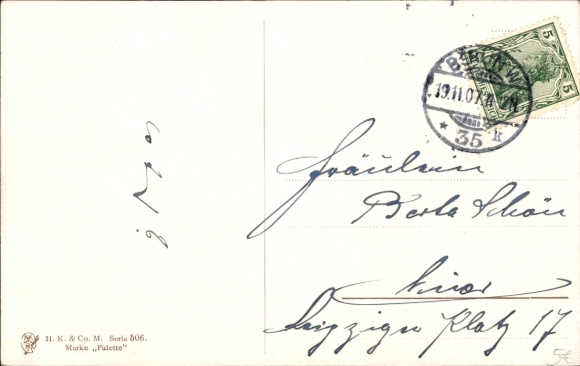 5
5
BERLIN W
19.11.07.
* 35 k
Fräulein
Berta Schön
hier
Leipziger Platz 17
H. K. & Co. M. Serie 506.
Marke „Palette"
5€